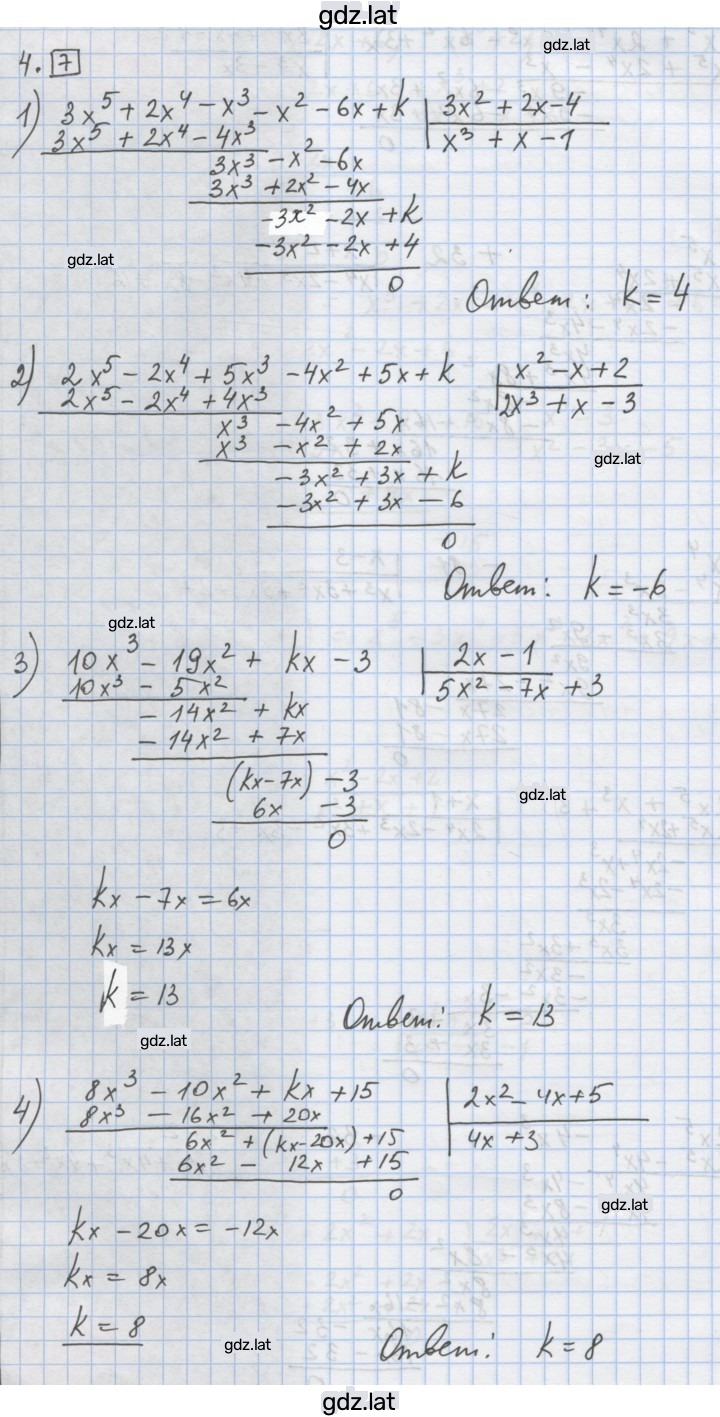 gdz.lat
gdz.lat
4. 7
1) 3x⁵ + 2x⁴ - x³ - x² - 6x + k | 3x² + 2x - 4
3x⁵ + 2x⁴ - 4x³ | x³ + x - 1
3x³ - x² - 6x
3x³ + 2x² - 4x
-3x² - 2x + k
gdz.lat
-3x² - 2x + 4
0
Ответ: k = 4
2) 2x⁵ - 2x⁴ + 5x³ - 4x² + 5x + k | x² - x + 2
2x⁵ - 2x⁴ + 4x³ | 2x³ + x - 3
x³ - 4x² + 5x
x³ - x² + 2x
gdz.lat
-3x² + 3x + k
-3x² + 3x - 6
0
Ответ: k = -6
gdz.lat
3) 10x³ - 19x² + kx - 3 | 2x - 1
10x³ - 5x² | 5x² - 7x + 3
-14x² + kx
-14x² + 7x
(kx - 7x) - 3
gdz.lat
6x - 3
0
kx - 7x = 6x
kx = 13x
k = 13
Ответ: k = 13
gdz.lat
4) 8x³ - 10x² + kx + 15 | 2x² - 4x + 5
8x³ - 16x² + 20x | 4x + 3
6x² + (kx - 20x) + 15
6x² - 12x + 15
0
gdz.lat
kx - 20x = -12x
kx = 8x
k = 8
gdz.lat
Ответ: k = 8
gdz.lat